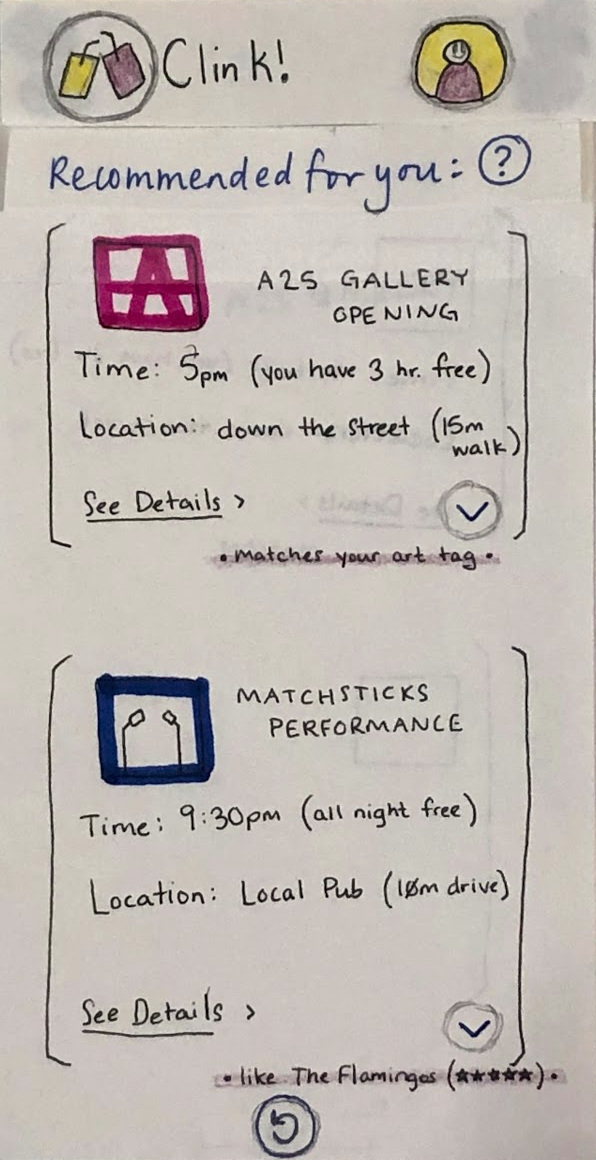 Clink!
Recommended for you: ?
A
A25 GALLERY
OPENING
Time: 5pm (you have 3 hr. free)
Location: down the street (15m
walk)
See Details >
• matches your art tag •
MATCHSTICKS
PERFORMANCE
Time: 9:30pm (all night free)
Location: Local Pub (10m drive)
See Details >
• like The Flamingos (★★★★★) •